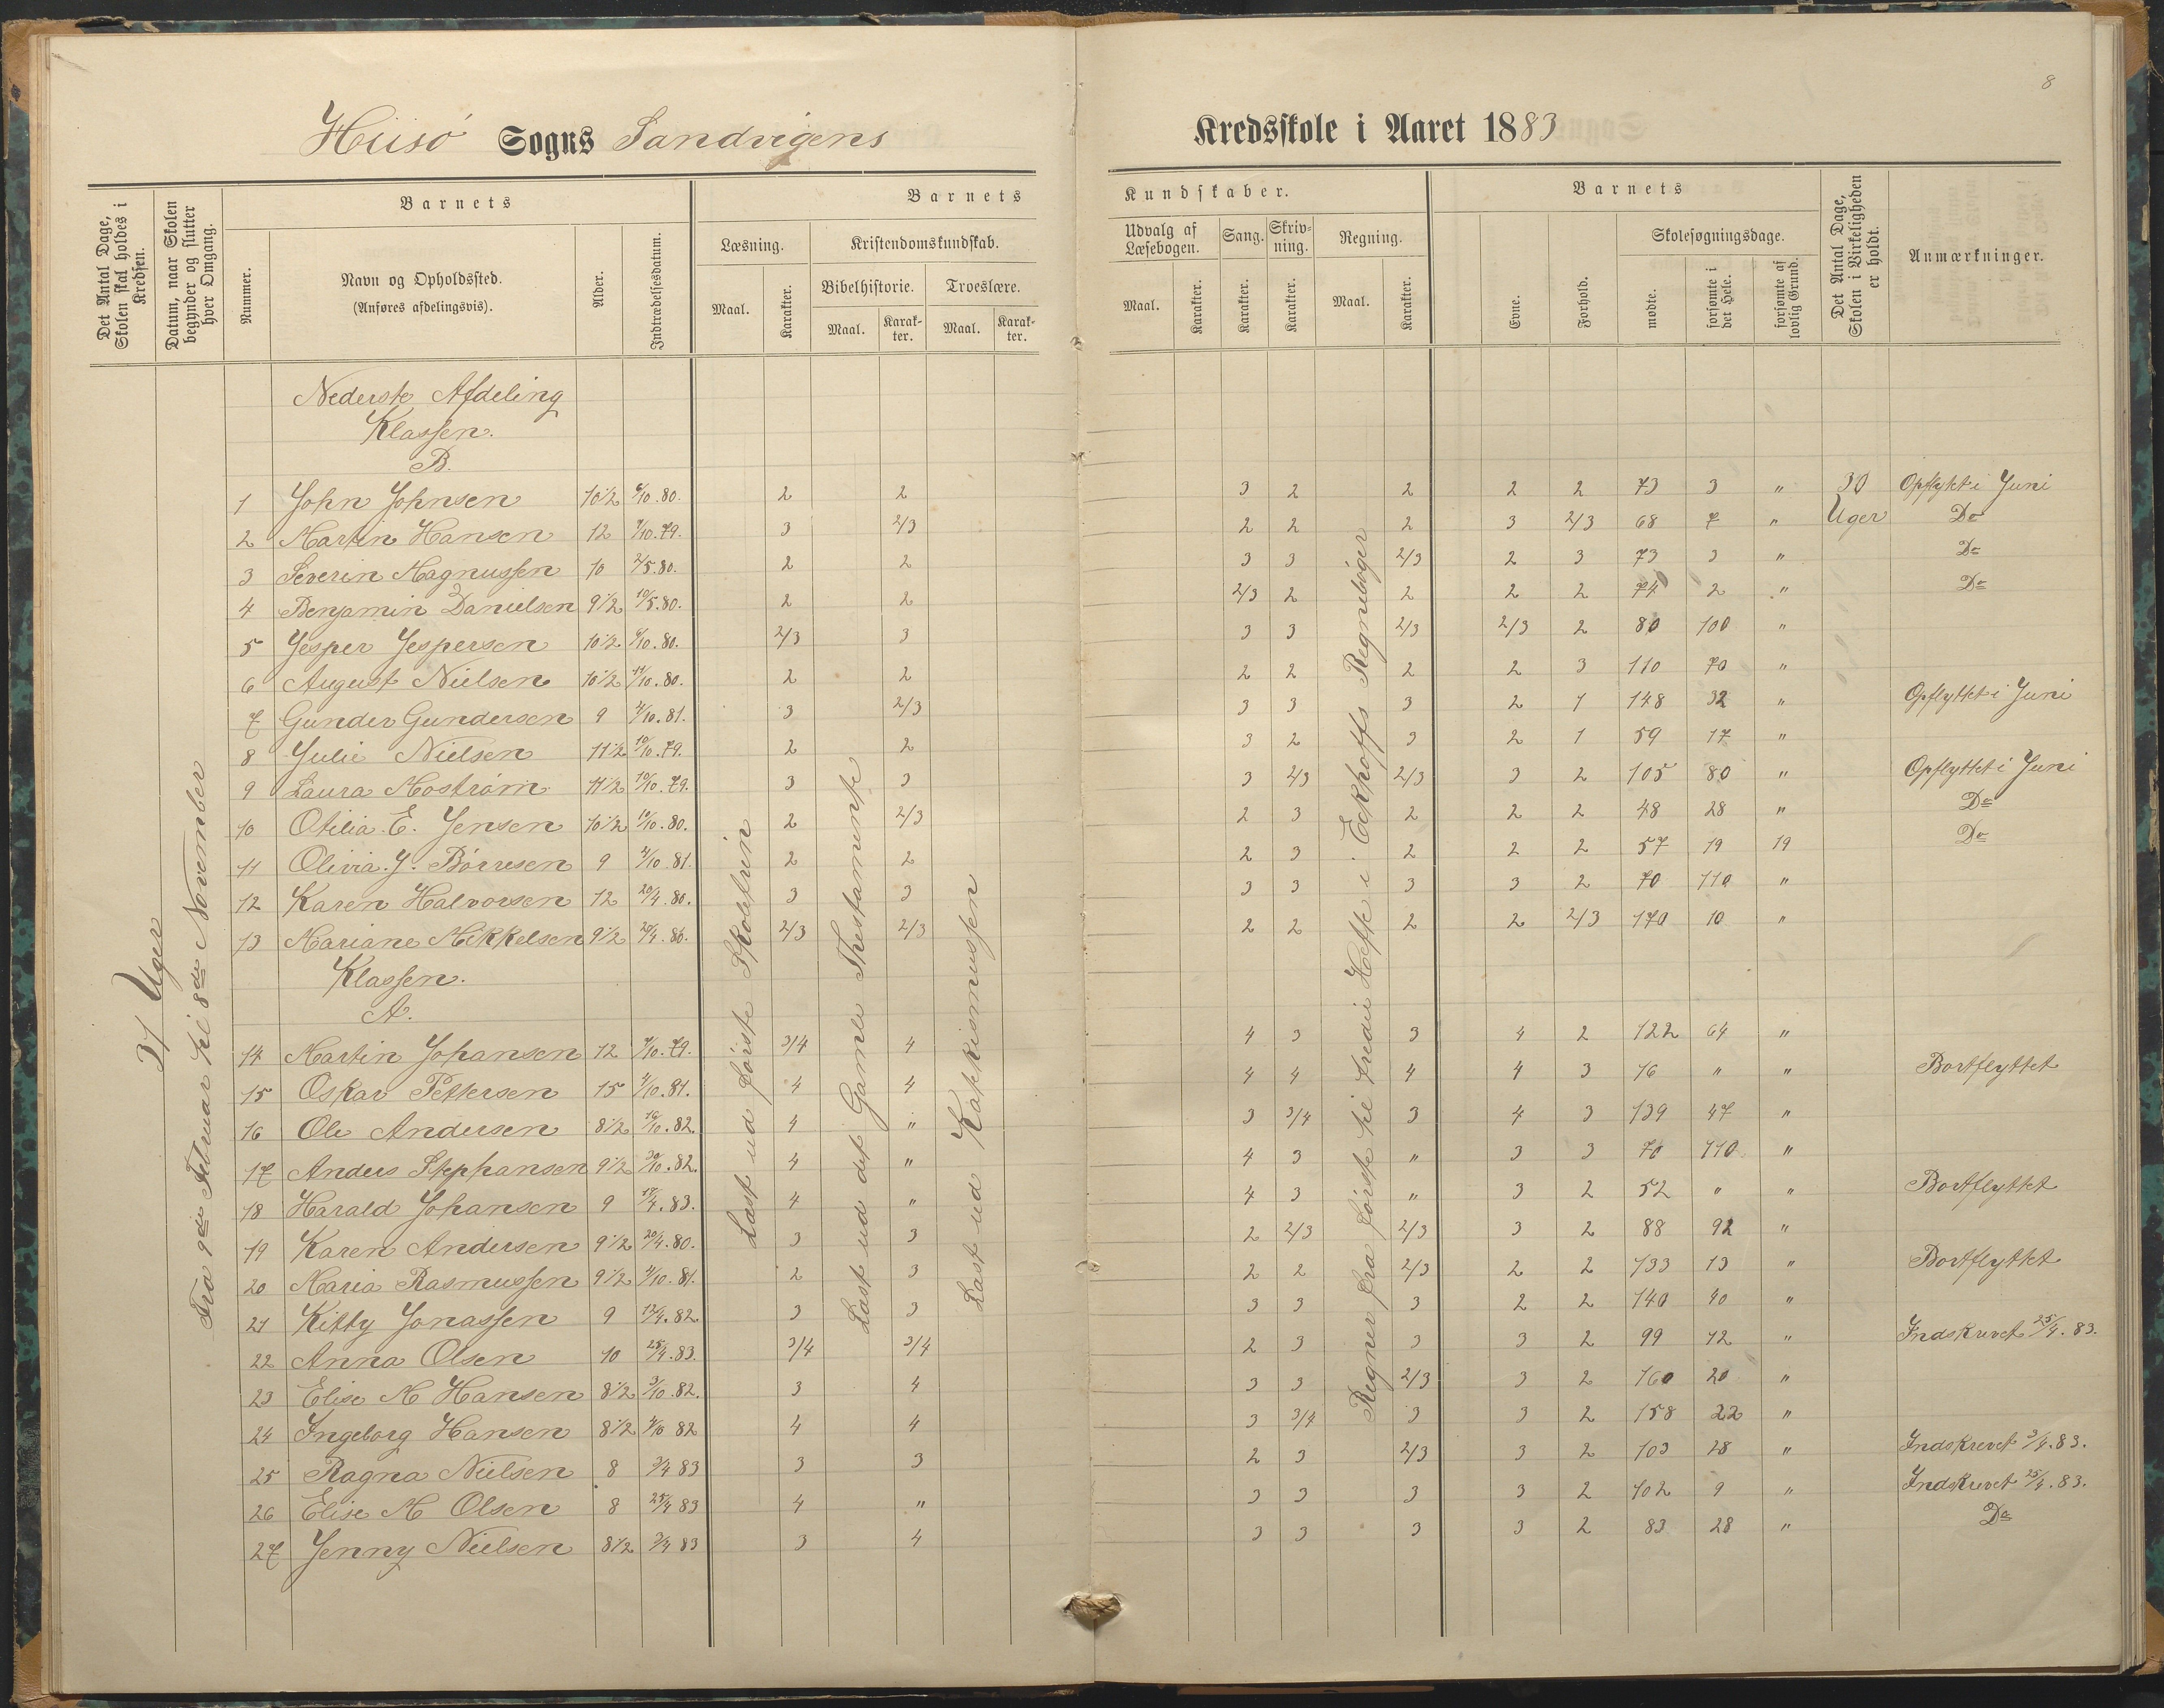 8
Hiisö Sogns Sandvigens Kredsskole i Aaret 1883
Det Antal Dage, Skolen skal holdes i Kredsen.
Datum, naar Skolen begynder og slutter hver Omgang.
Barnets
Nummer.
Navn og Opholdssted.
(Anføres afdelingsvis).
Alder.
Indtrædelsesdatum.
Barnets Kundskaber.
Læsning.
Maal.
Karakter.
Kristendomskundskab.
Bibelhistorie.
Maal.
Karakter.
Troeslære.
Maal.
Karakter.
Udvalg af Læsebogen.
Maal.
Karakter.
Sang.
Karakter.
Skrivning.
Karakter.
Regning.
Maal.
Karakter.
Barnets
Evne.
Forhold.
Skolesøgningsdage.
mødte.
forsømte i det Hele.
forsømte af lovlig Grund.
Det Antal Dage, Skolen i Virkeligheden er holdt.
Anmærkninger.
31 Uger
Fra 9de Februar til 8de November
Læst ud første Skoletrin
Læst ud det Gamle Thestamente
Læst ud Katkismussen
Regner fra første til tredie Hefte i Eckhoffs Regnebøger
Nederste Afdeling
Klassen.
B.
1 John Johnsen 10 1/2 6/10.80. 2 2 3 2 2 2 2 73 3 " 30 Opflyktei Juni
2 Martin Hansen 12 7/10.79. 3 2/3 2 2 2 3 2/3 68 7 " Uger Do
3 Severin Magnussen 10 2/5.80. 2 2 3 3 2/3 2 3 73 3 " Do
4 Benjamin Danielsen 9 1/2 10/5.80. 2 2 2/3 2 2 2 2 74 2 " Do
5 Jesper Jespersen 10 1/2 6/10.80. 2/3 3 3 3 2/3 2/3 2 80 100 "
6 August Nielsen 10 1/2 11/10.80. 2 2 2 2 2 2 3 110 70 "
7 Gunder Gundersen 9 4/10.81. 3 2/3 3 3 3 2 1 148 32 " Opflyttet i Juni
8 Julie Nielsen 11 1/2 10/10.79. 2 2 3 2 3 2 1 59 17 "
9 Laura Mostrøm 11 1/2 10/10.79. 3 3 3 2/3 2/3 3 2 105 80 " Opflyttet i Juni
10 Otilia E. Jensen 10 1/2 11/10.80. 2 2/3 2 3 2 2 2 48 28 " Do
11 Olivia. J. Børresen 9 4/10.81. 2 2 2 3 2 2 2 57 19 19 Do
12 Karen Halvorsen 12 20/4.80. 3 3 3 3 3 3 2 70 110 "
13 Mariane Mikkelsen 9 1/2 20/4.80. 2/3 2/3 2 2 2 2 2/3 170 10 "
Klassen.
A.
14 Martin Johansen 12 7/10.79. 3/4 4 4 3 3 4 2 122 64 "
15 Oskar Pettersen 15 4/10.81. 4 4 4 4 4 4 3 16 " " Bortflyttet
16 Ole Andersen 8 1/2 16/10.82. 4 " 3 3/4 3 4 3 139 47 "
17 Anders Stephansen 9 1/2 30/10.82. 4 " 4 3 " 3 3 70 110 "
18 Harald Johansen 9 17/4.83. 4 " 4 3 " 3 2 52 " " Bortflyttet
19 Karen Andersen 9 1/2 20/4.80. 3 3 2 2/3 2/3 3 2 88 92 "
20 Maria Rasmussen 9 1/2 4/10.81. 2 3 2 2 2/3 2 2 133 13 " Bortflyttet
21 Kitty Jonassen 9 12/4.82. 3 3 3 3 3 2 2 140 40 "
22 Anna Olsen 10 25/4.83. 3/4 3/4 2 3 3 3 2 99 12 " Indskrevet 25/4.83.
23 Elise M Hansen 8 1/2 3/10.82. 3 4 3 3 2/3 3 2 160 20 "
24 Ingeborg Hansen 8 1/2 4/10 82 4 4 3 3/4 3 3 2 158 22 "
25 Ragna Nielsen 8 3/4 83 3 3 2 3 2/3 3 2 103 28 " Indskrevet 3/4.83.
26 Elise M Olsen 8 25/4 83 4 " 3 3 3 3 2 102 9 " Indskrevet 25/4.83.
27 Jenny Nielsen 8 1/2 3/4 83 3 4 3 3 3 3 2 83 28 " Do